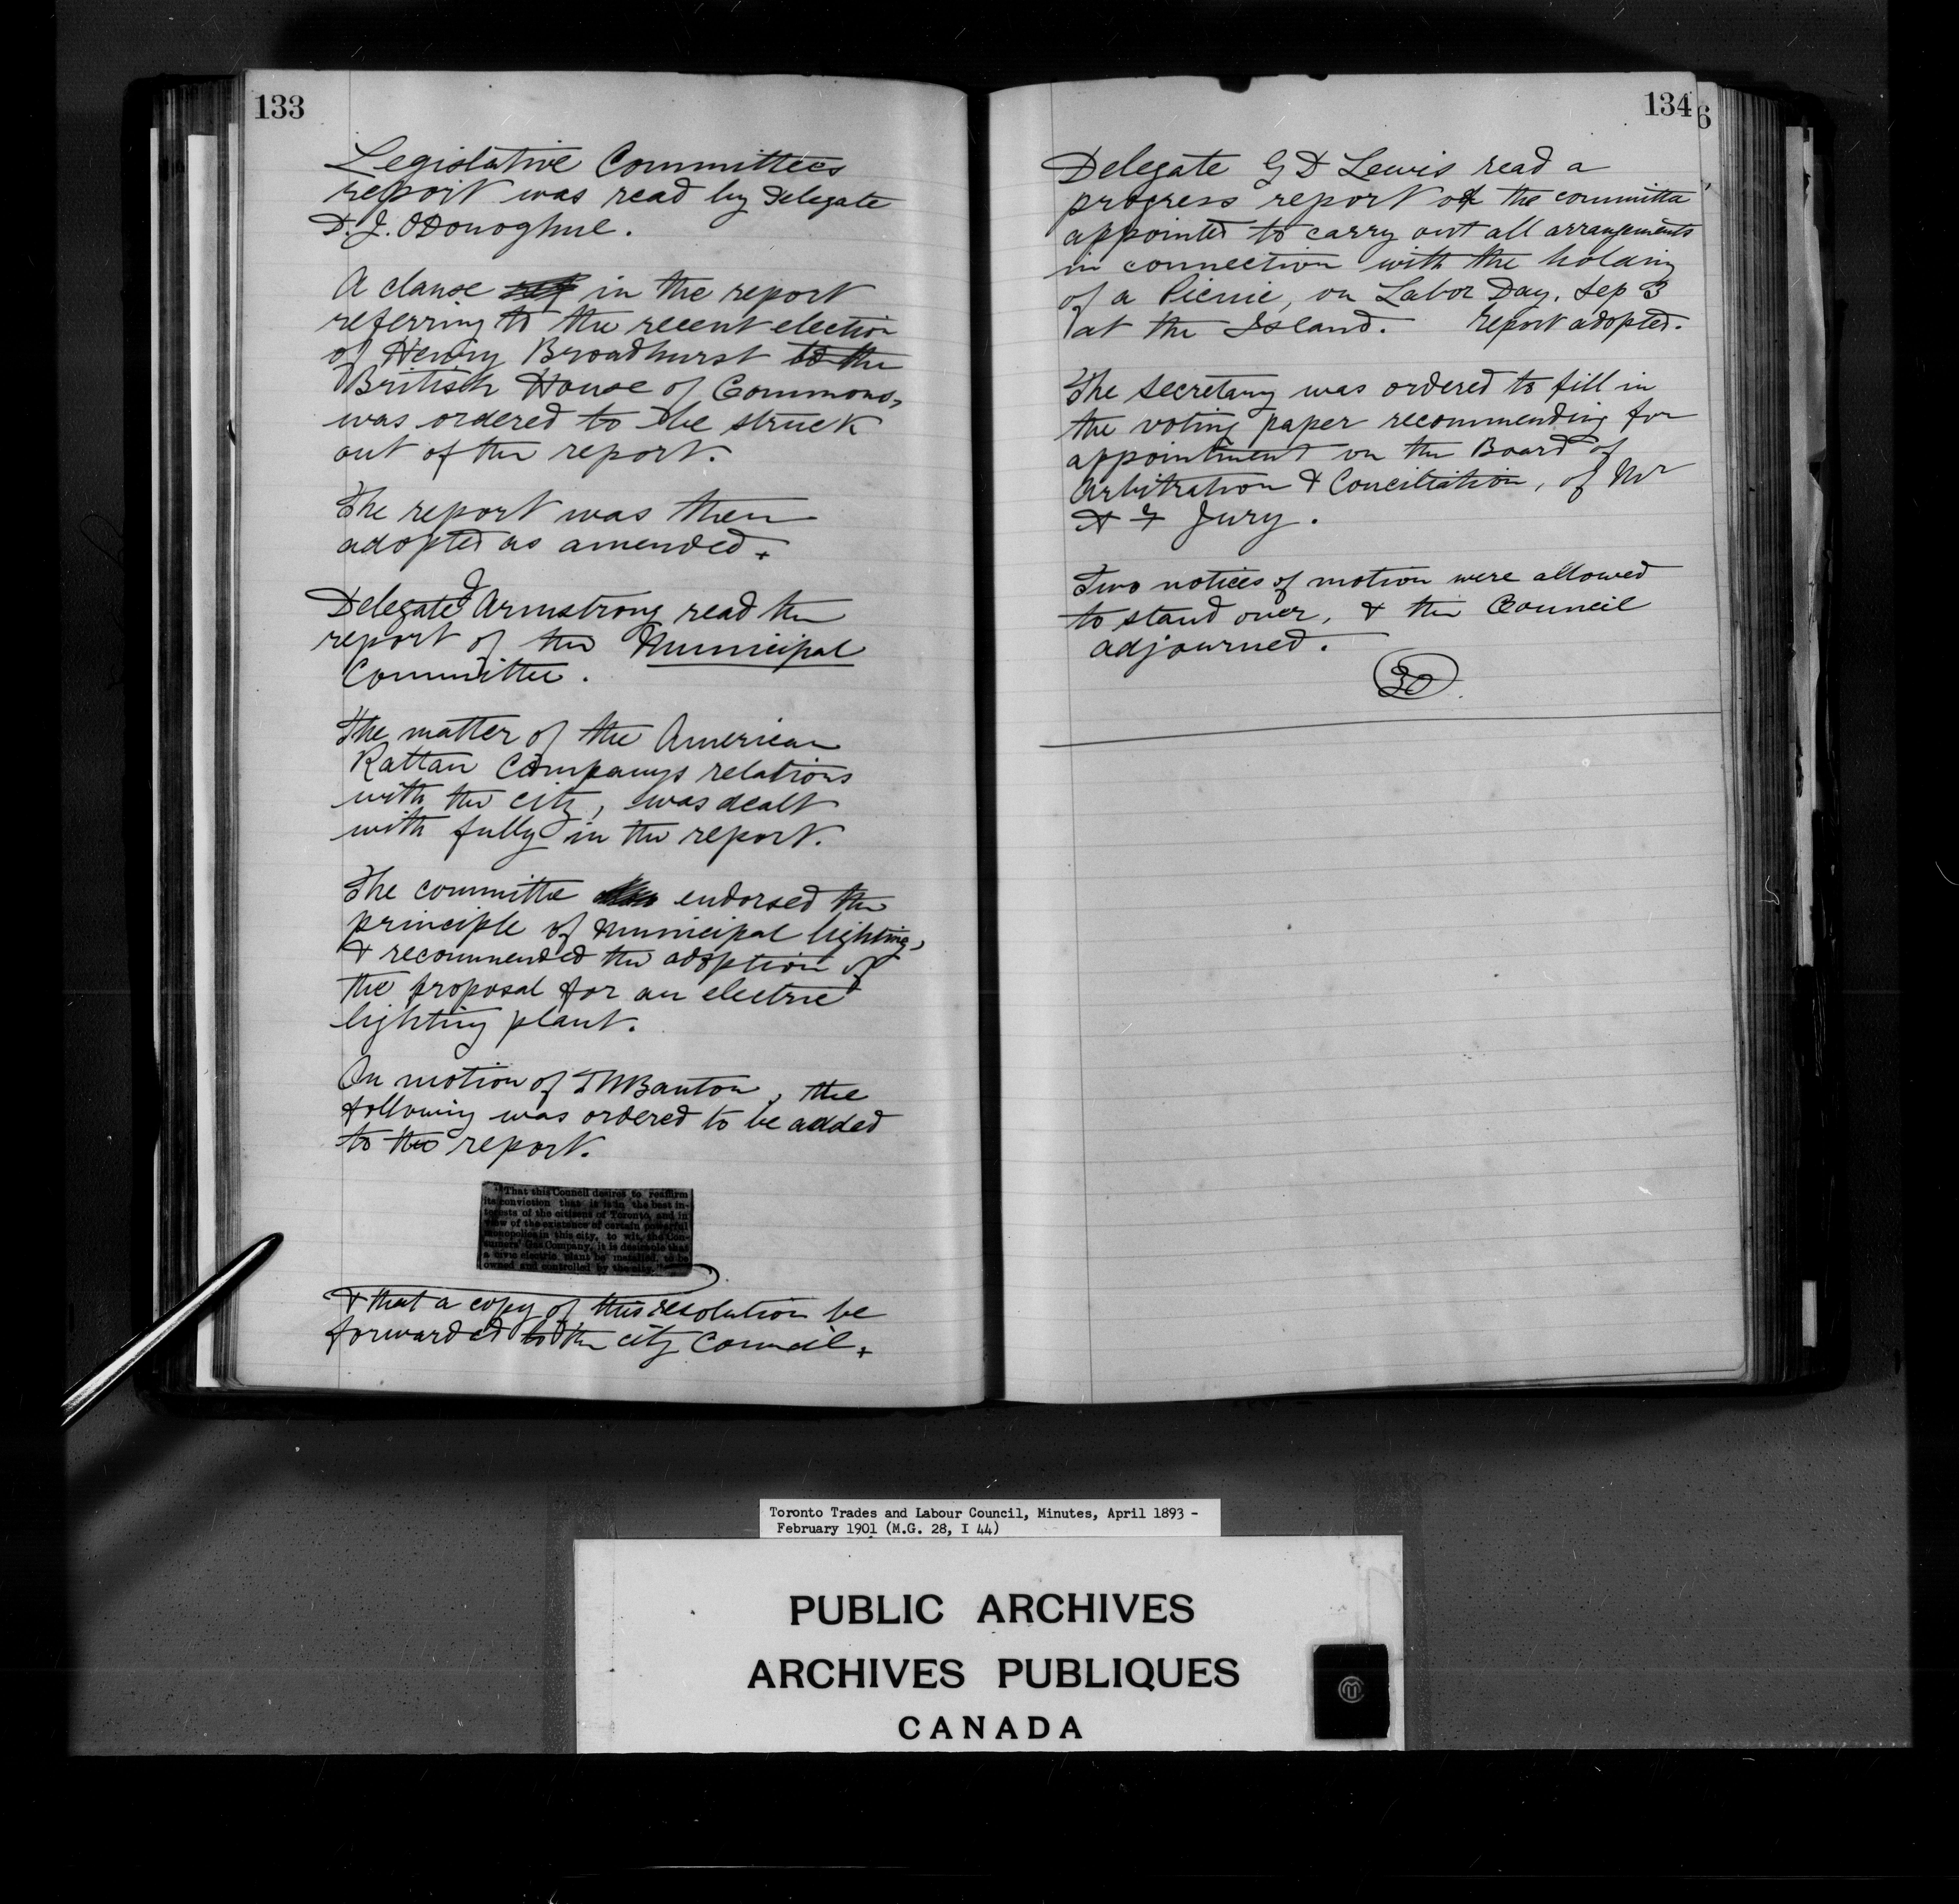 133
Legislative Committees
report was read by Delegate
D. J. O'Donoghue.
A clause in the report
referring to the recent election
of Henry Broadhurst to the
British House of Commons,
was ordered to be struck
out of the report.
The report was then
adopted as amended.
Delegate J Armstrong read the
report of the Municipal
Committee.
The matter of the American
Rattan Companys relations
with the city, was dealt
with fully in the report.
The committee endorsed the
principle of Municipal lighting,
& recommended the adoption of
the proposal for an electric
lighting plant.
On motion of T W Banton, the
following was ordered to be added
to the report.
"That this Council desires to reaffirm
its conviction that it is in the best in-
terests of the citizens of Toronto, and in
view of the existence of certain powerful
monopolies in this city, to wit, the Con-
sumers' Gas Company, it is desirable that
a civic electric plant be installed, to be
owned and controlled by the city."
& that a copy of this resolution be
forwarded to the city Council.
134
6
Delegate G D Lewis read a
progress report of the committee
appointed to carry out all arrangements
in connection with the holding
of a Picnic, on Labor Day, Sep 3
at the Island. Report adopted.
The Secretary was ordered to fill in
the voting paper recommending for
appointment on the Board of
Arbitration & Conciliation, of Mr
A F Jury.
Two notices of motion were allowed
to stand over, & the Council
adjourned.
30
Toronto Trades and Labour Council, Minutes, April 1893 -
February 1901 (M.G. 28, I 44)
PUBLIC ARCHIVES
ARCHIVES PUBLIQUES
CANADA